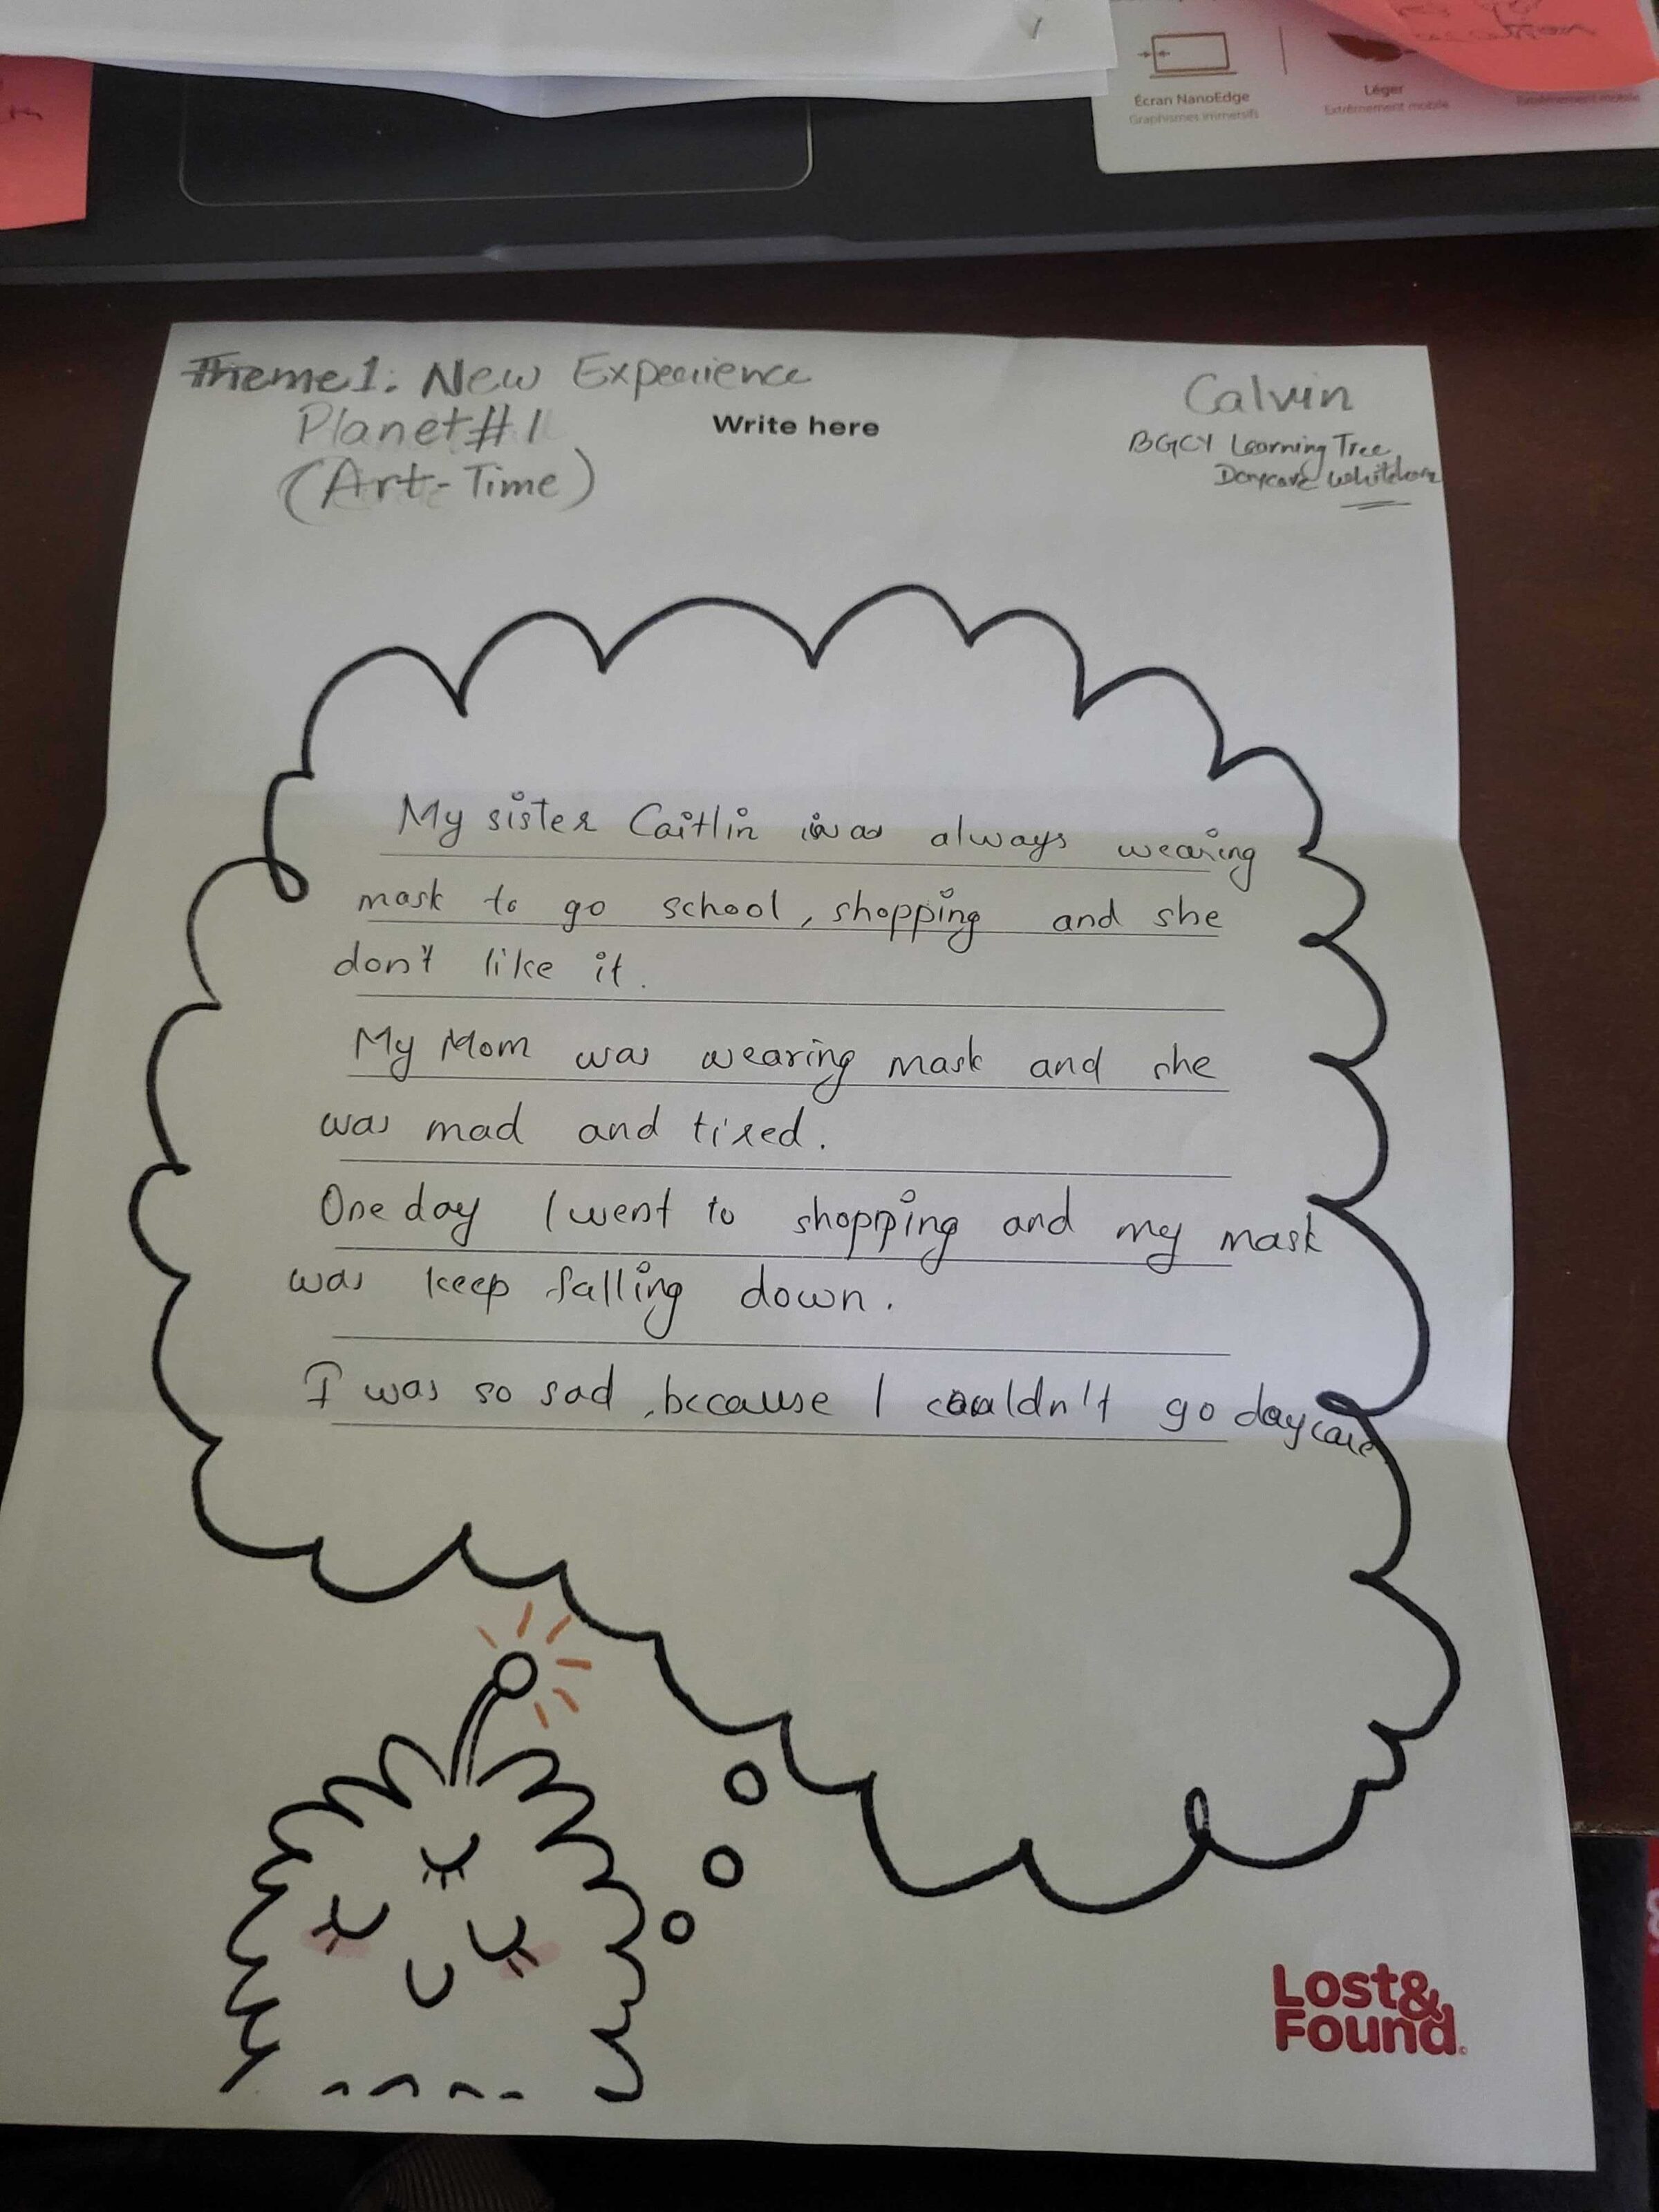 Écran NanoEdge
Graphismes immersifs
Léger
Extrêmement mobile
Theme1: New Experience
Planet#1
(Art-Time)
Write here
Calvin
BGCY Learning Tree
Daycare Whitehorse
My sister Caitlin was always wearing
mask to go school, shopping and she
don't like it.
My Mom was wearing mask and she
was mad and tired.
One day I went to shopping and my mask
was keep falling down.
I was so sad, because I couldn't go daycare
Lost&
Found